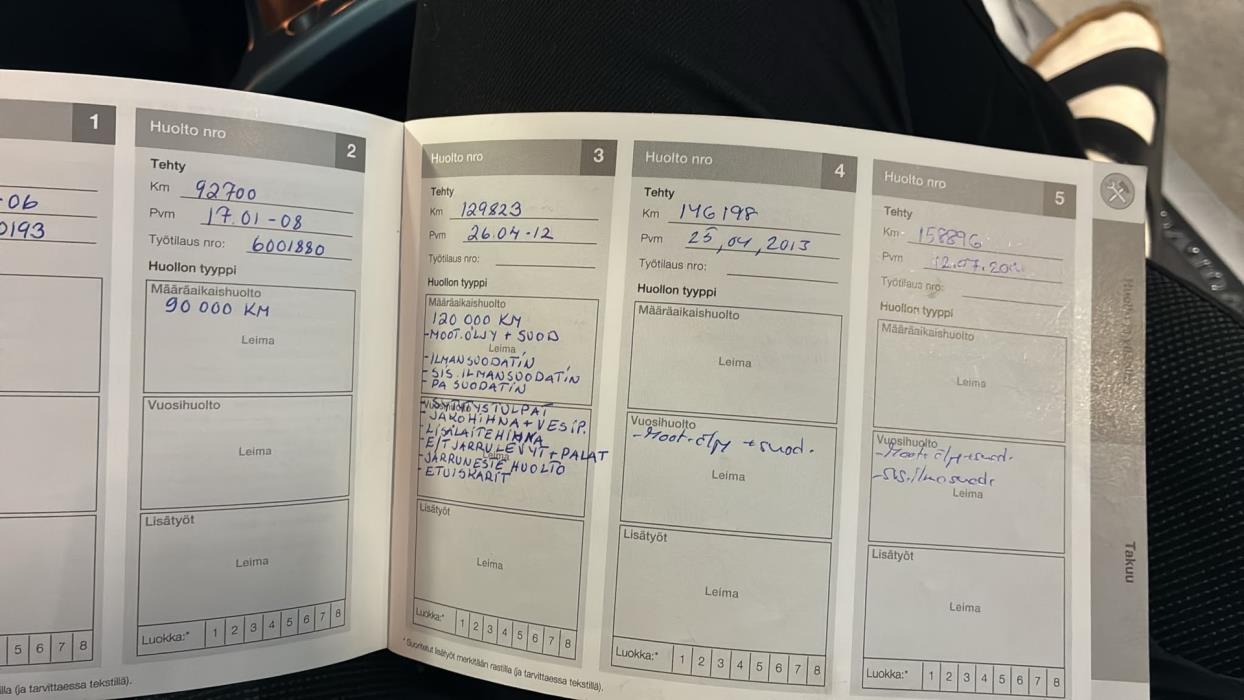 1
-06
0193
5 6 7 8
Huolto nro 2
Tehty
Km 92700
Pvm 17.01-08
Työtilaus nro: 6001880
Huollon tyyppi
Määräaikaishuolto
90 000 KM
Leima
Vuosihuolto
Leima
Lisätyöt
Leima
Luokka:* 1 2 3 4 5 6 7 8
illa (ja tarvittaessa tekstillä).
Huolto nro 3
Tehty
Km 129823
Pvm 26.04-12
Työtilaus nro:
Huollon tyyppi
Määräaikaishuolto
120 000 KM
-MOOT.ÖLJY + SUOD
Leima
-ILMANSUODATIN
-SIS.ILMANSUODATIN
-PA SUODATIN
Vuosihuolto
-SYTYTYSTULPAT
-JAKOHIHNA + VESIP.
-LISÄLAITEHIHNA
-E/T JARRULEVYT + PALAT
Leima
-JARRUNESTE HUOLTO
-ETUISKARIT
Lisätyöt
Leima
Luokka:* 1 2 3 4 5 6 7 8
* Suoritetut lisätyöt merkitään rastilla (ja tarvittaessa tekstillä).
Huolto nro 4
Tehty
Km 146198
Pvm 25,04,2013
Työtilaus nro:
Huollon tyyppi
Määräaikaishuolto
Leima
Vuosihuolto
-Moot.öljy + suod.
Leima
Lisätyöt
Leima
Luokka:* 1 2 3 4 5 6 7 8
Huolto nro 5
Tehty
Km 158896
Pvm 12.07.
Työtilaus nro:
Huollon tyyppi
Määräaikaishuolto
Leima
Vuosihuolto
-Moot.öljy+suod.
-sis.ilmasuod.
Leima
Lisätyöt
Leima
Luokka:* 1 2 3 4 5 6 7 8
Takuu